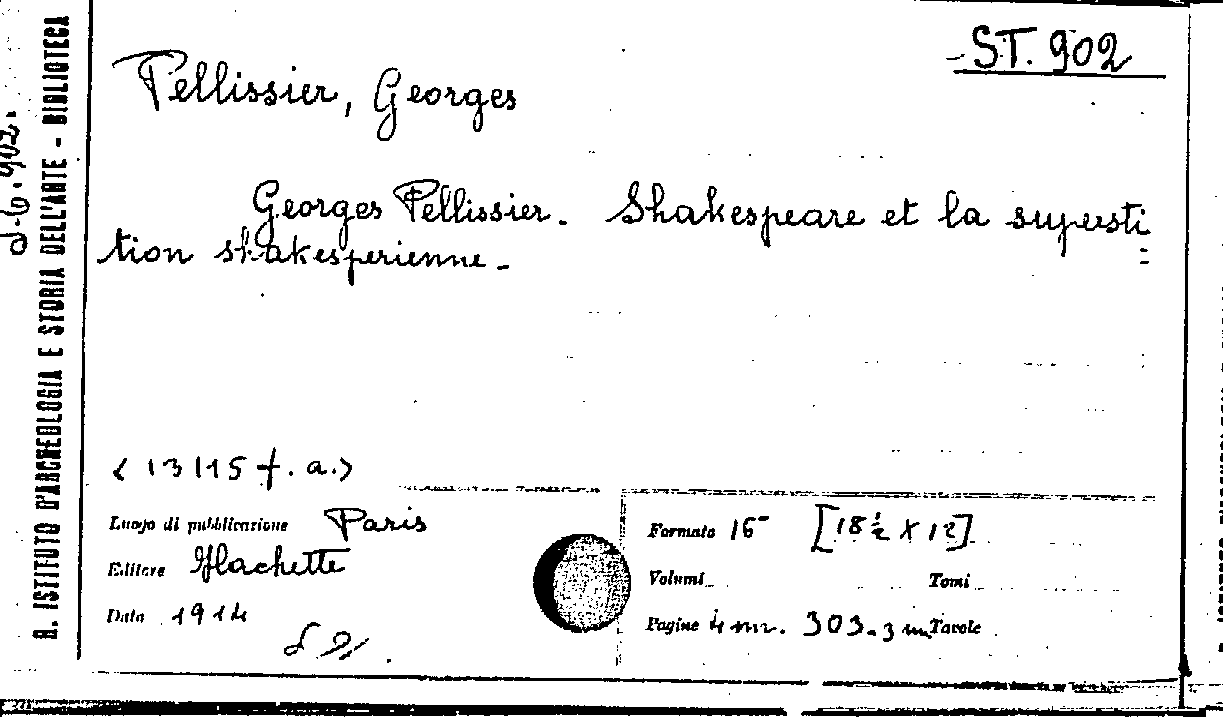 ST. 902
Pellissier, Georges
Georges Pellissier. Shakespeare et la supersti
tion shakesperienne.
<13115 f. a.>
Luogo di pubblicazione Paris
Editore Hachette
Data 1914
Formato 16° [18½ x 12]
Volumi Tomi
Pagine 4 nn. 303. 3 nn. Tavole
R. ISTITUTO D'ARCHEOLOGIA E STORIA DELL'ARTE - BIBLIOTECA
902.